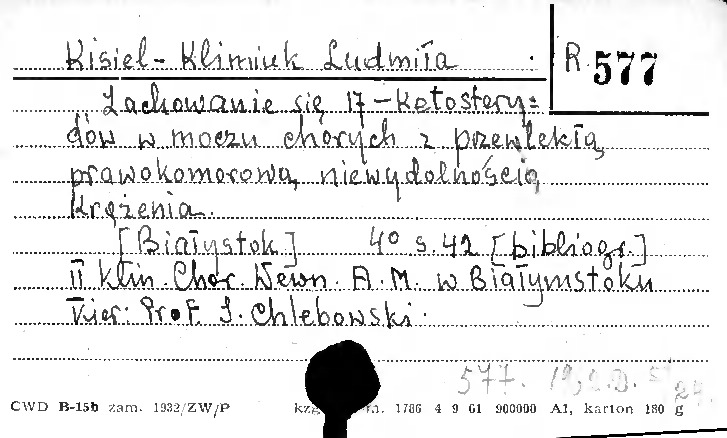 Kisiel-Klimiuk Ludmiła : R. 577
Zachowanie się 17-Ketostery=
dów w moczu chorych z przewlekłą
prawokomorową niewydolnością
Krążenia.
[Białystok] 4° s. 42 [bibliogr.]
II Klin. Chor. Wewn. A.M. w Białymstoku
Kier: Prof. J. Chlebowski.
577.
CWD B-15b zam. 1932/ZW/P kzg m. 1786 4 9 61 900000 A1, karton 180 g